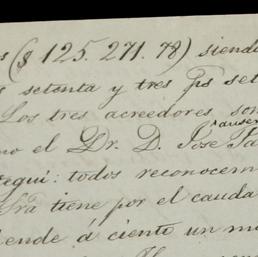 s ($ 125. 271. 78) siendo
setenta y tres ps set
Los tres acreedores, son
no el Dr. D. Jose
egui: todos reconocem
Sra tiene por el cauda
iende á ciento un m